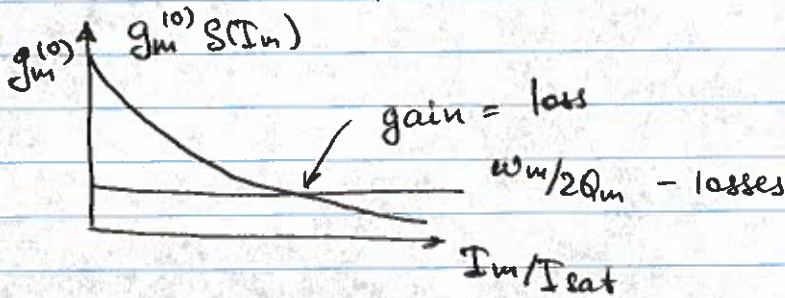 g_m^(0) g_m^(0) S(I_m)
gain = loss
ω_m/2Q_m - losses
I_m/I_sat